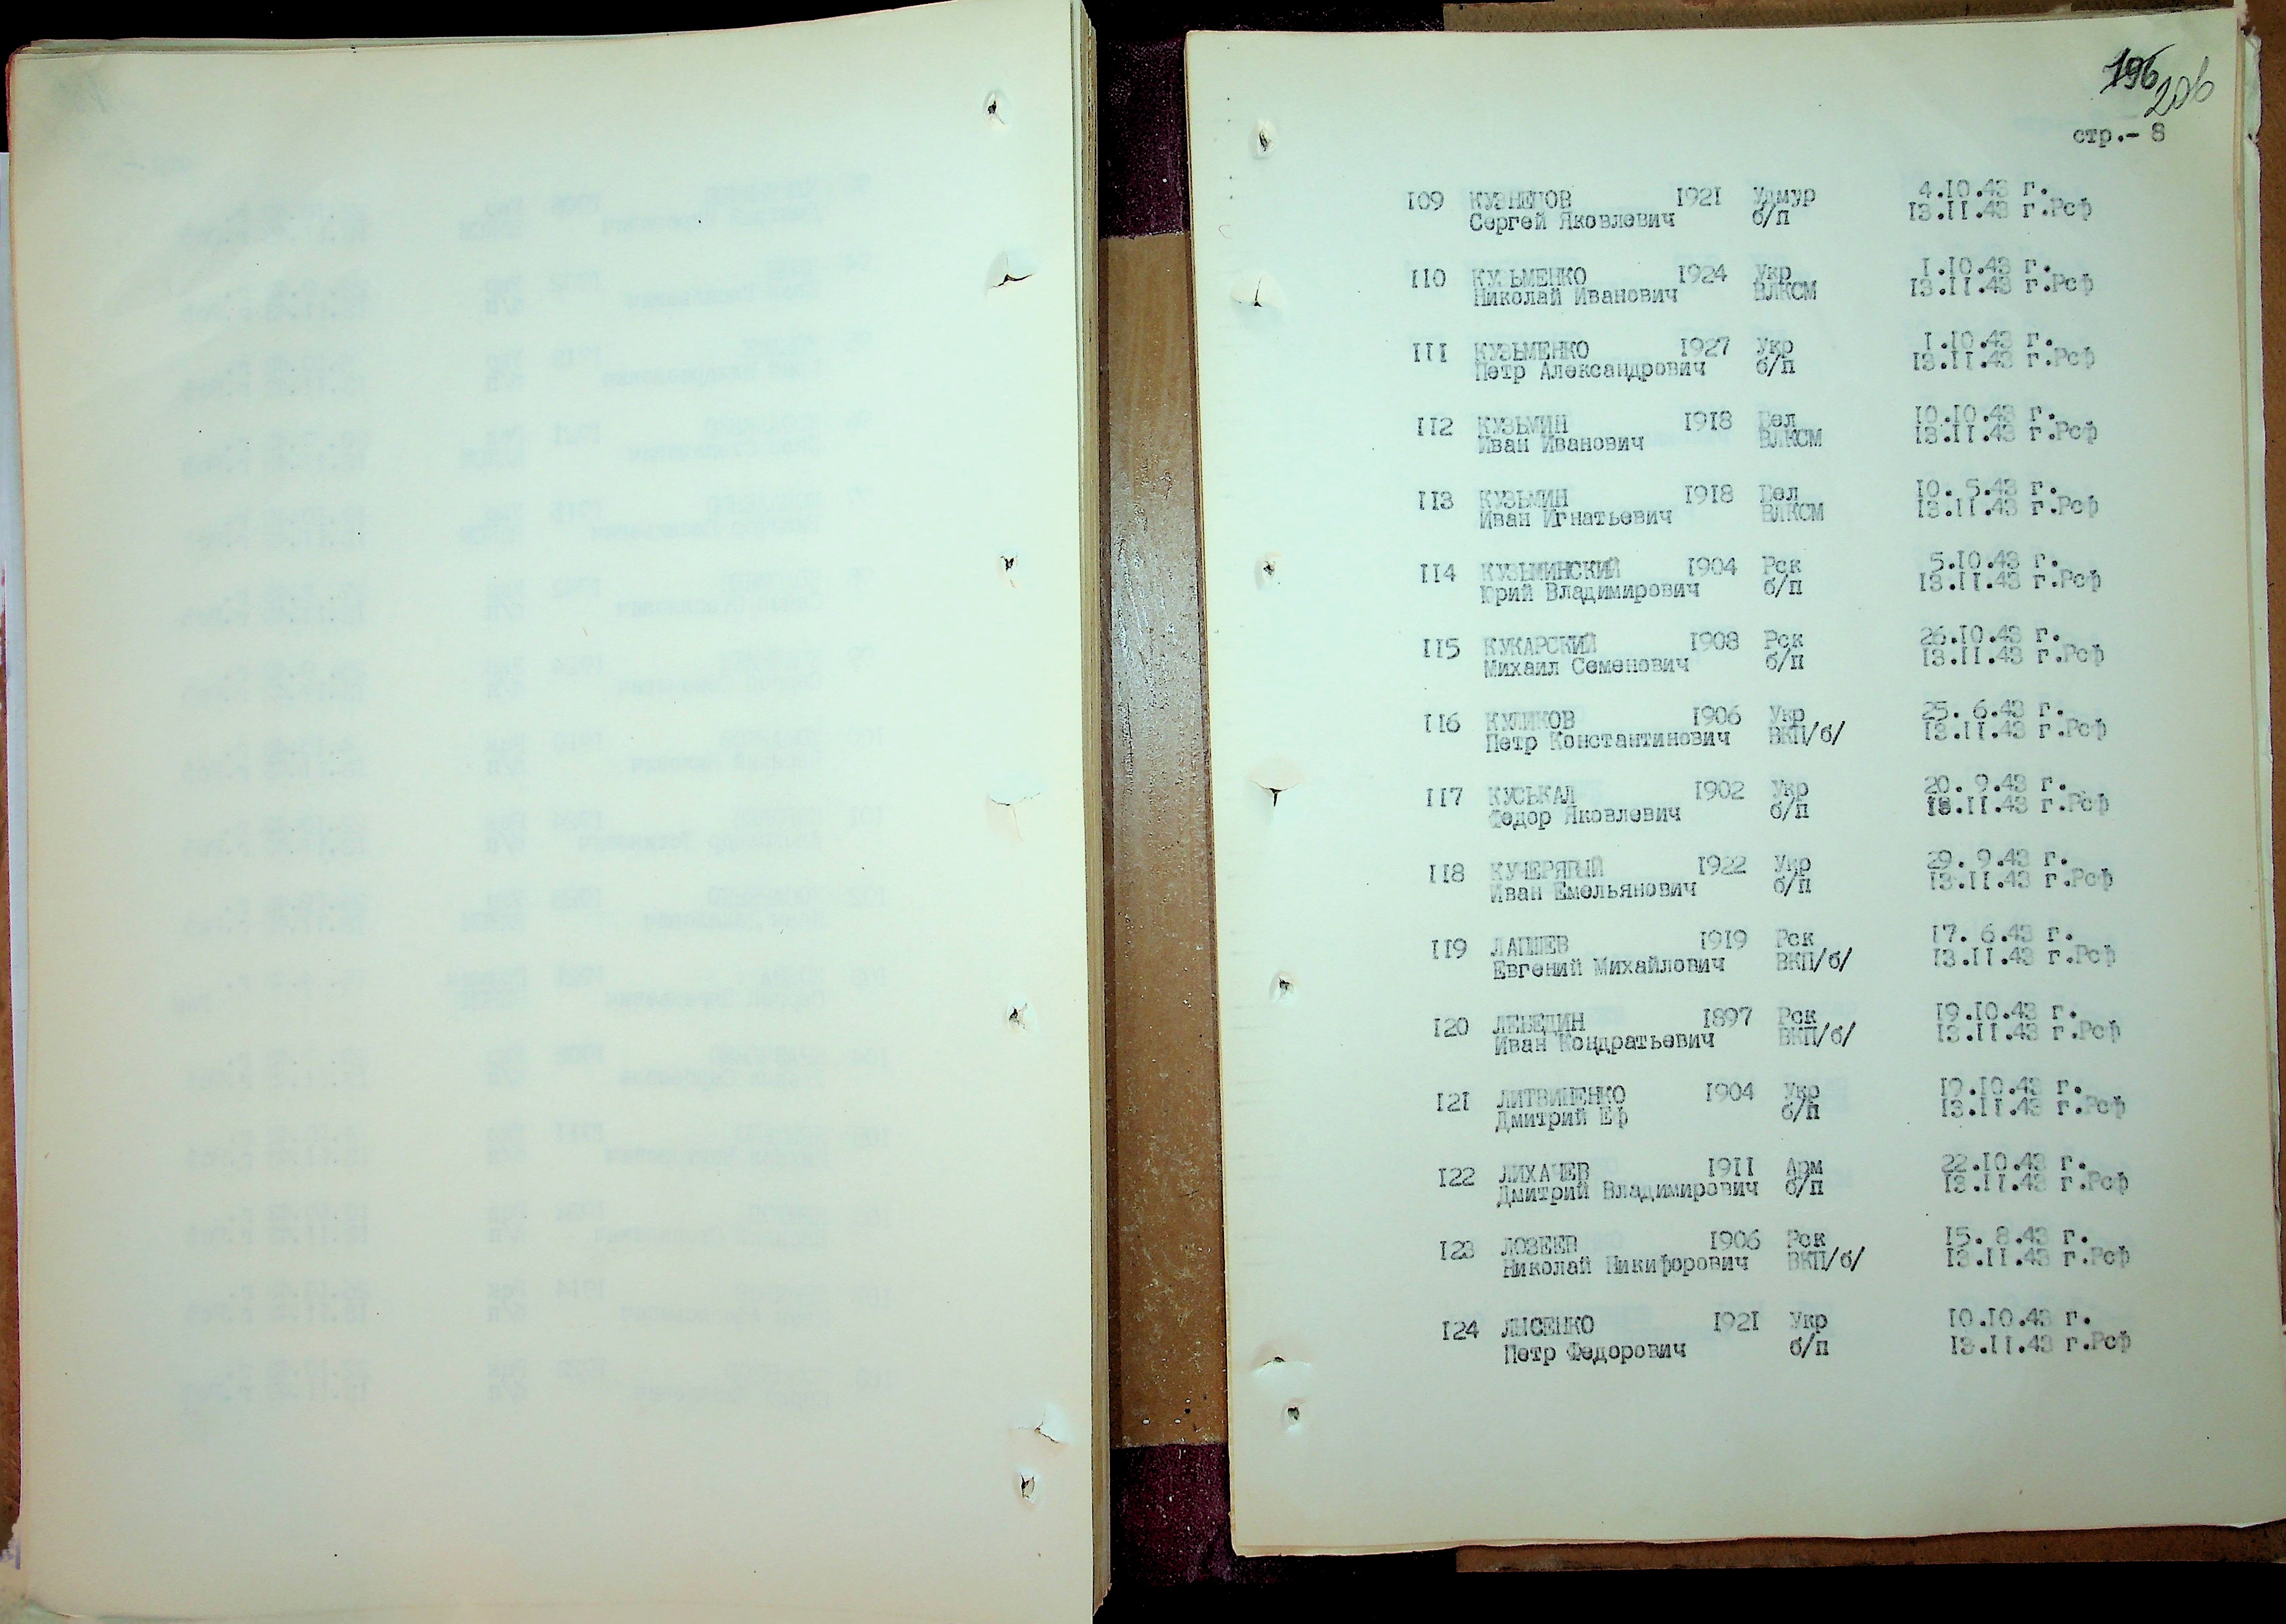 196
206
стр.- 8
109 КУЗНЕЦОВ 1921 Удмур 4.10.43 г.
Сергей Яковлевич б/п 13.11.43 г.Рсф
110 КУЗЬМЕНКО 1924 Укр 1.10.43 г.
Николай Иванович ВЛКСМ 13.11.43 г.Рсф
111 КУЗЬМЕНКО 1927 Укр 1.10.43 г.
Петр Александрович б/п 13.11.43 г.Рсф
112 КУЗЬМИН 1918 Бел 10.10.43 г.
Иван Иванович ВЛКСМ 13.11.43 г.Рсф
113 КУЗЬМИН 1918 Бел 10. 5.43 г.
Иван Игнатьевич ВЛКСМ 13.11.43 г.Рсф
114 КУЗЬМИНСКИЙ 1904 Рск 5.10.43 г.
Юрий Владимирович б/п 13.11.43 г.Рсф
115 КУКАРСКИЙ 1908 Рск 26.10.43 г.
Михаил Семенович б/п 13.11.43 г.Рсф
116 КУЛИКОВ 1906 Укр 25. 6.43 г.
Петр Константинович ВКП/б/ 13.11.43 г.Рсф
117 КУСЬКАЛ 1902 Укр 20. 9.43 г.
Федор Яковлевич б/п 13.11.43 г.Рсф
118 КУЧЕРЯВЫЙ 1922 Укр 29. 9.43 г.
Иван Емельянович б/п 13.11.43 г.Рсф
119 ЛАПШЕВ 1919 Рск 17. 6.43 г.
Евгений Михайлович ВКП/б/ 13.11.43 г.Рсф
120 ЛЕБЕДИН 1897 Рск 19.10.43 г.
Иван Кондратьевич ВКП/б/ 13.11.43 г.Рсф
121 ЛИТВИНЕНКО 1904 Укр 19.10.43 г.
Дмитрий Еф б/п 13.11.43 г.Рсф
122 ЛИХАЧЕВ 1911 Арм 22.10.43 г.
Дмитрий Владимирович б/п 13.11.43 г.Рсф
123 ЛОЗЕЕВ 1906 Рск 15. 8.43 г.
Николай Никифорович ВКП/б/ 13.11.43 г.Рсф
124 ЛЫСЕНКО 1921 Укр 10.10.43 г.
Петр Федорович б/п 13.11.43 г.Рсф